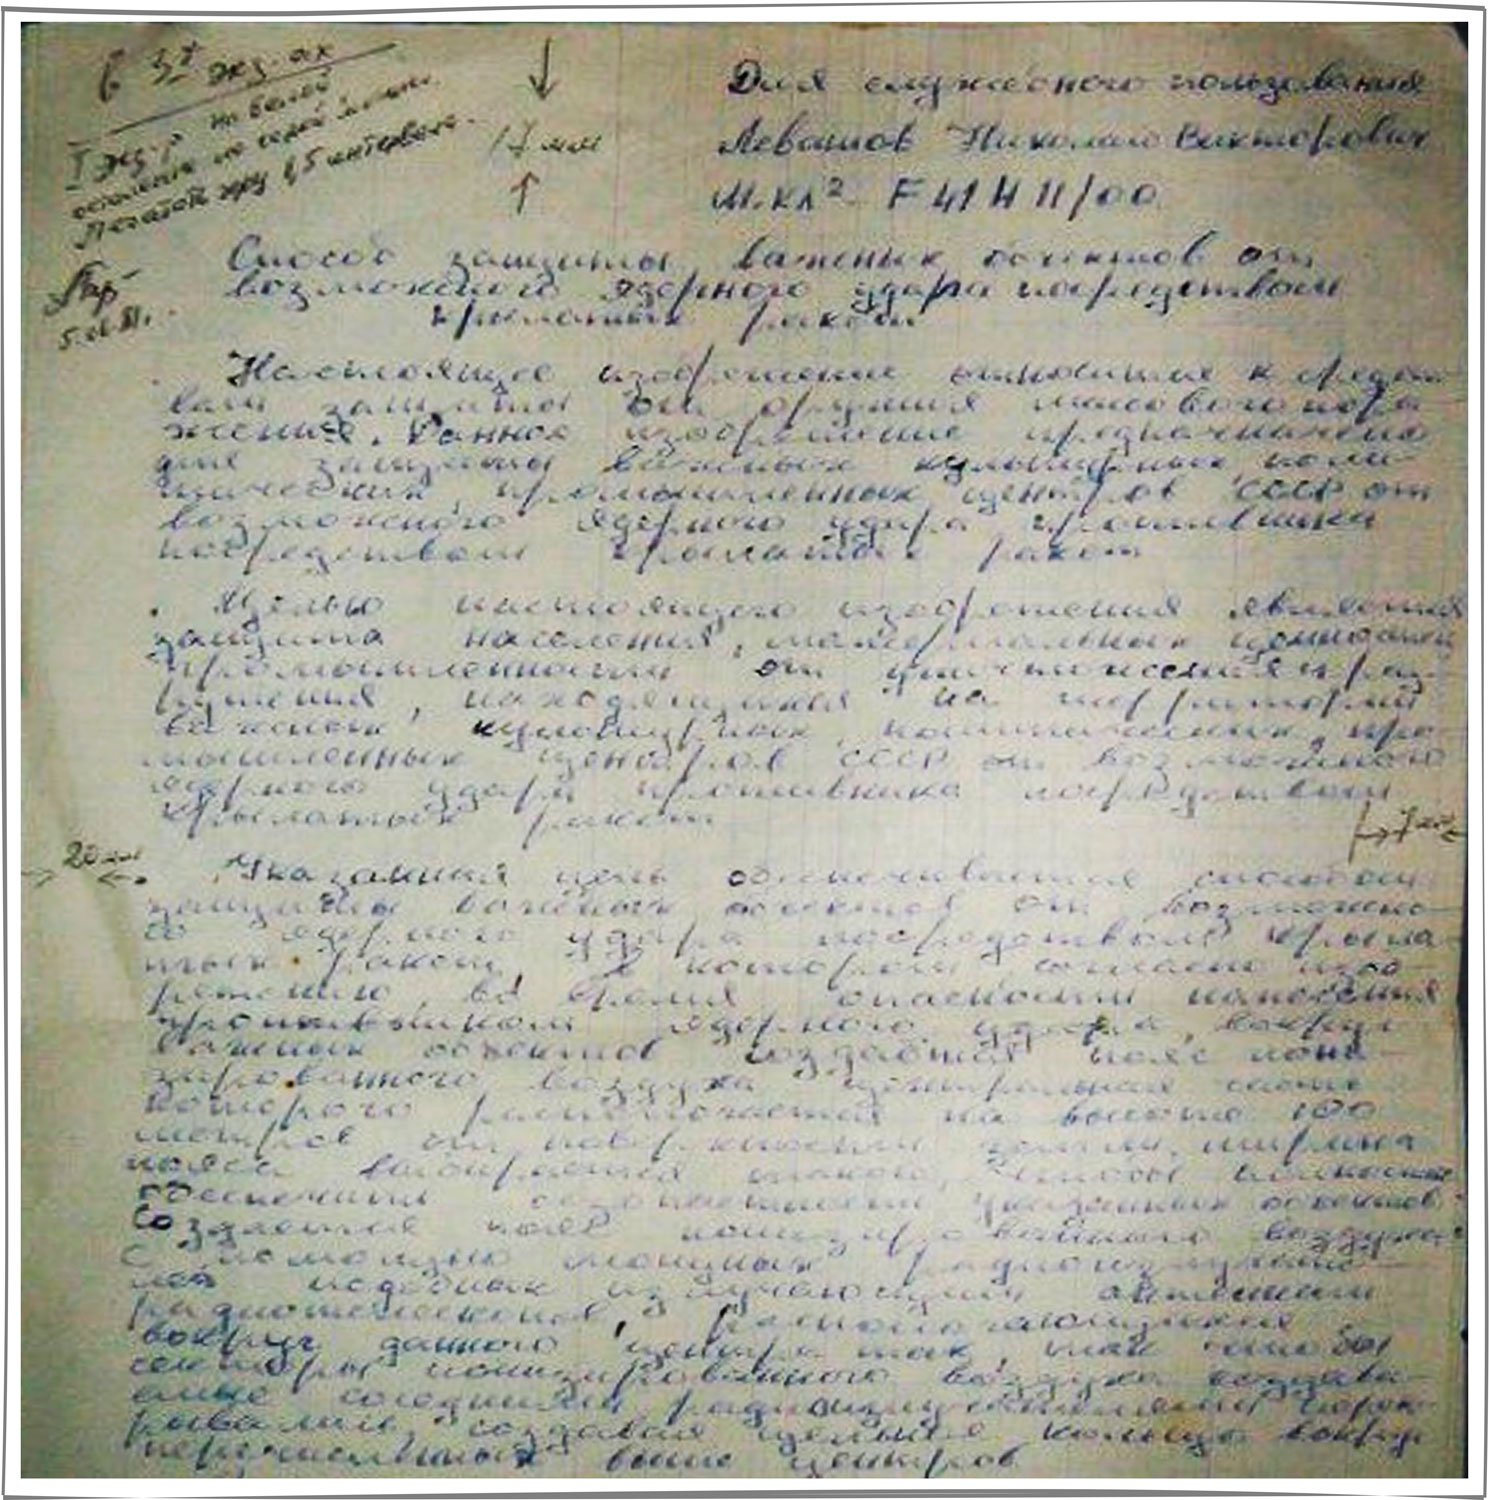 в 3х экз-ах
I экз-р на белой
остальные на серой
Печатать через 1,5 интервала.
17 мм
Для служебного пользования
Левашов Николай Викторович
М.кл² F 41 H 11/00
Способ защиты важных объектов от
возможного ядерного удара посредством
крылатых ракет
Настоящее изобретение относится к средст-
вам защиты от оружия массового пора-
жения. Данное изобретение предназначено
для защиты важных культурных, поли-
тических, промышленных центров СССР от
возможного ядерного удара противника
посредством крылатых ракет
Целью настоящего изобретения является
защита населения, материальных ценностей
промышленности от уничтожения и раз-
рушения, находящихся на территории
важных культурных, политических, про-
мышленных центров СССР от возможного
ядерного удара противника посредством
крылатых ракет
7 мм
20 мм
Указанная цель обеспечивается способом
защиты важных объектов от возможно-
го ядерного удара посредством крыла-
тых ракет, в котором согласно изоб-
ретению, во время опасности нанесения
противником ядерного удара, вокруг
важных объектов создаётся пояс иони-
зированного воздуха центральная часть
которого располагается на высоте 100
метров от поверхности земли, ширина
пояса выбирается такого, чтобы полностью
обеспечить безопасность указанных объектов.
Создаётся пояс ионизированного воздуха
с помощью мощных радиоизлучате-
лей подобных излучающим антеннам
радиотелескопов, располагающихся
вокруг данного центра так, так чтобы
секторы ионизированного воздуха создава-
емые соседними радиоизлучателями перек-
рывались, создавая цельные кольца вокруг
перечисленных выше центров